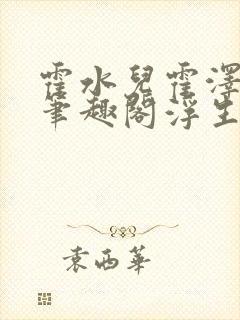 霍水兒霍澤
筆趣閣浮生
袁西華